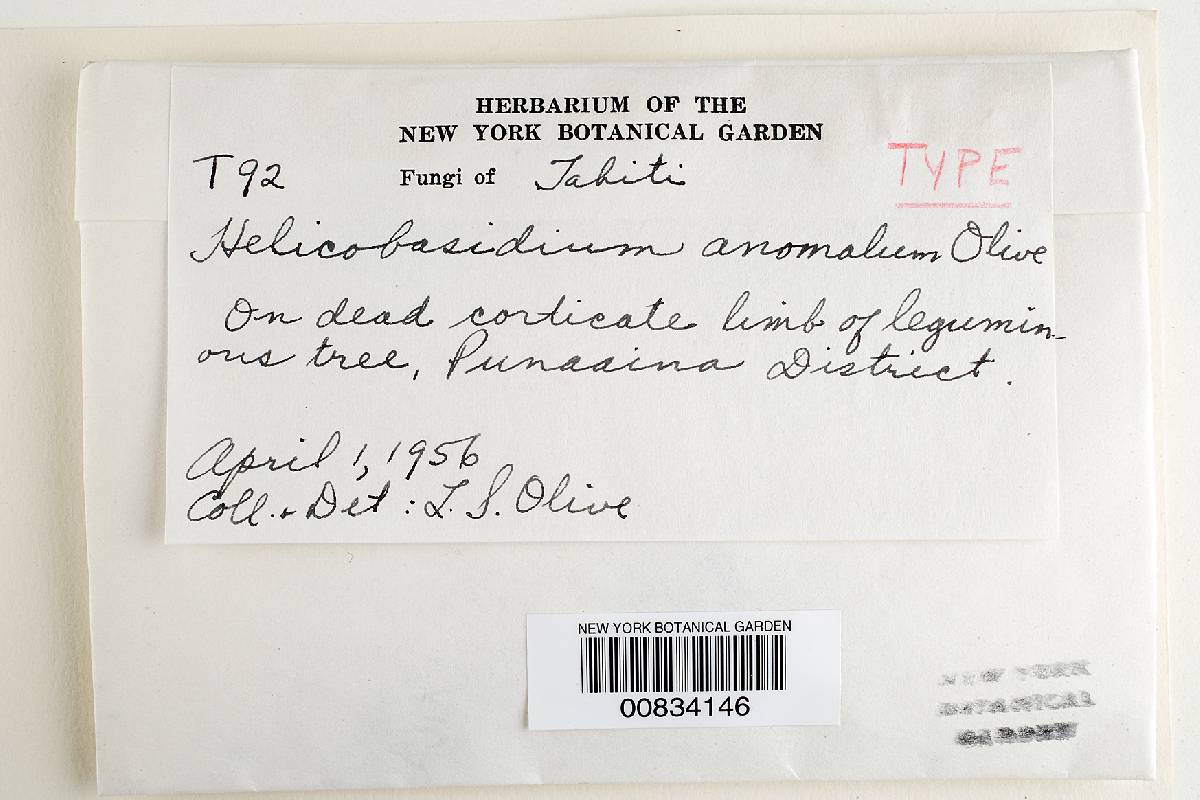 HERBARIUM OF THE
NEW YORK BOTANICAL GARDEN
T92 Fungi of Tahiti TYPE
Helicobasidium anomalum Olive
On dead corticate limb of legumin-
ous tree, Punaaina District.
April 1, 1956
Coll. & Det: L. S. Olive
NEW YORK BOTANICAL GARDEN
00834146
NEW YORK
BOTANICAL
GARDEN